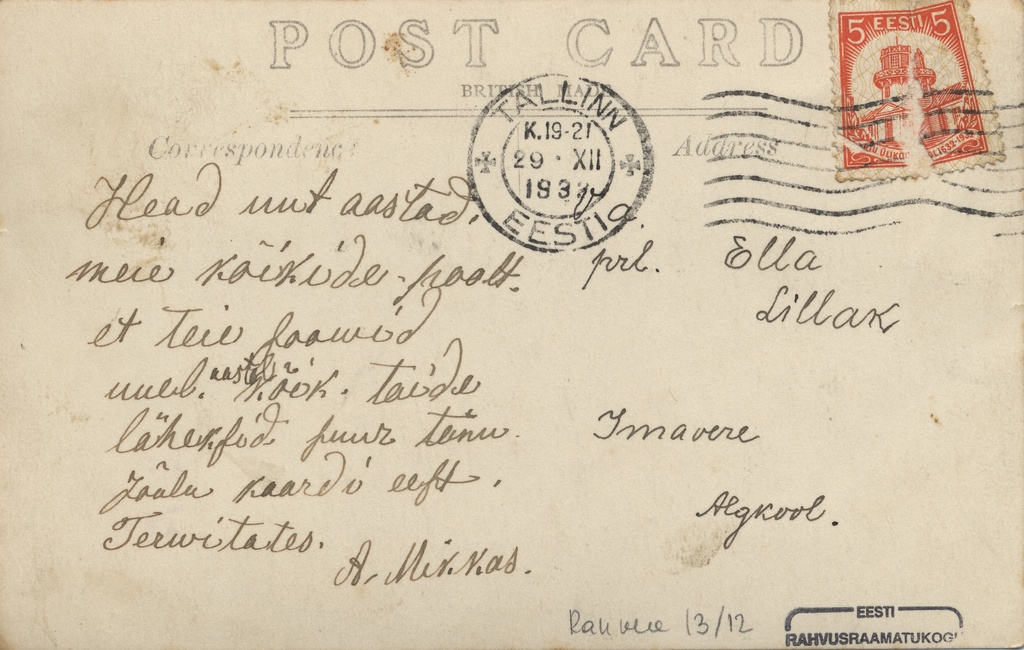 POST CARD
BRITISH MADE
Correspondence
Address
5 EESTI 5
TALLINN
K.19-21
29 XII
EESTI
Head uut aastad,
meie kõikide poolt.
et teie soowid
uuel. aastal kõik. täide
läheksid suur tänu.
Jõulu kaardi eest.
Terwitates.
A. Mikkas.
prl. Ella
Lillak
Imavere
Algkool.
Rakvere 13/12
EESTI
RAHVUSRAAMATUKOGU